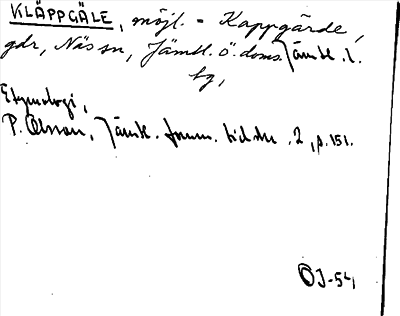 KLÄPPGÄLE, möjl. = Kappgärde,
gdr, Näs sn, Jämtl. ö. doms. Jämtl. l.
tg,
Etymologi,
P. Olsson, Jämtl. fornm. tidskr. 2, p. 151.
OJ-54